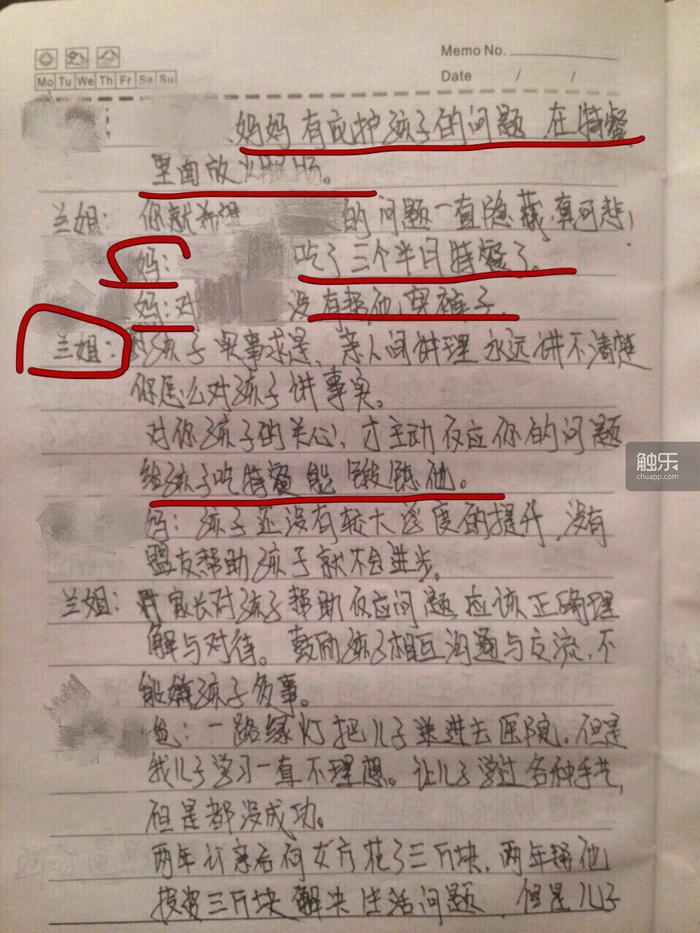 Memo No.
Mo Tu We Th Fr Sa Su
Date / /
妈妈有庇护孩子的问题 在特餐
里面放火腿肠。
兰姐：你就 的问题一直隐藏,真可悲!
妈: 吃了三个半月特餐了。
妈：对 没有帮他买裤子.
兰姐：对孩子实事求是、亲人间讲理永远讲不清楚
你怎么对孩子讲事实。
对你孩子的关心,才主动反应你的问题
给孩子吃特餐能锻练他。
妈：孩子还没有较大 度的提升,没有
盟友帮助孩子就不会进步。
兰姐：家长对孩子帮助反应问题应该正确理
解与对待。鼓励孩子相互沟通与交流,不
能嫌孩子多事。
爸：一路绿灯把儿子送进去医院,但是
我儿子学习一直不理想。让儿子学过各种手艺,
但是都没成功。
两年 花了三万块,两年 他
投资三万块解决生活问题,但是儿子
触乐
chuapp.com